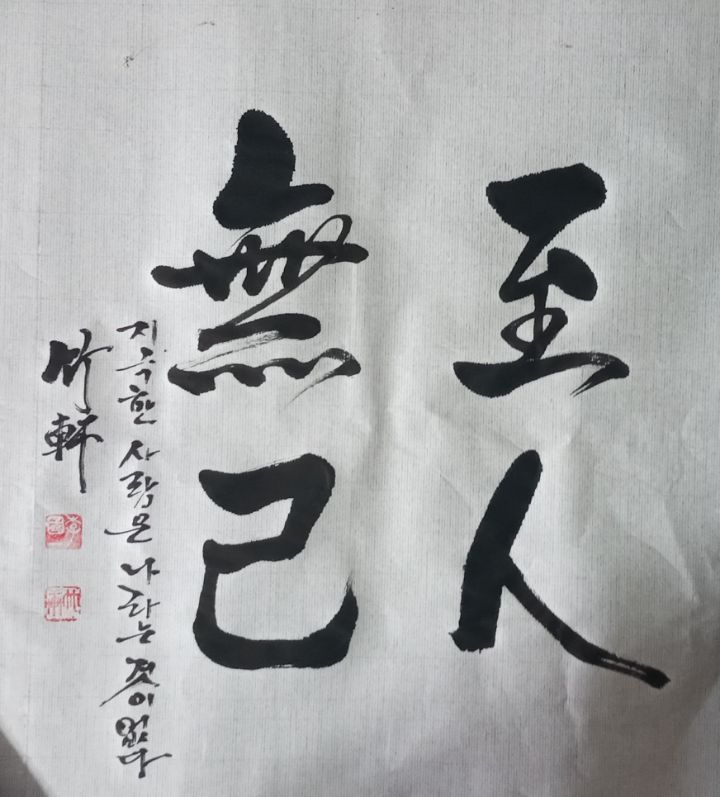 至人
無己
지극한 사람은 나라는 것이 없다
竹軒